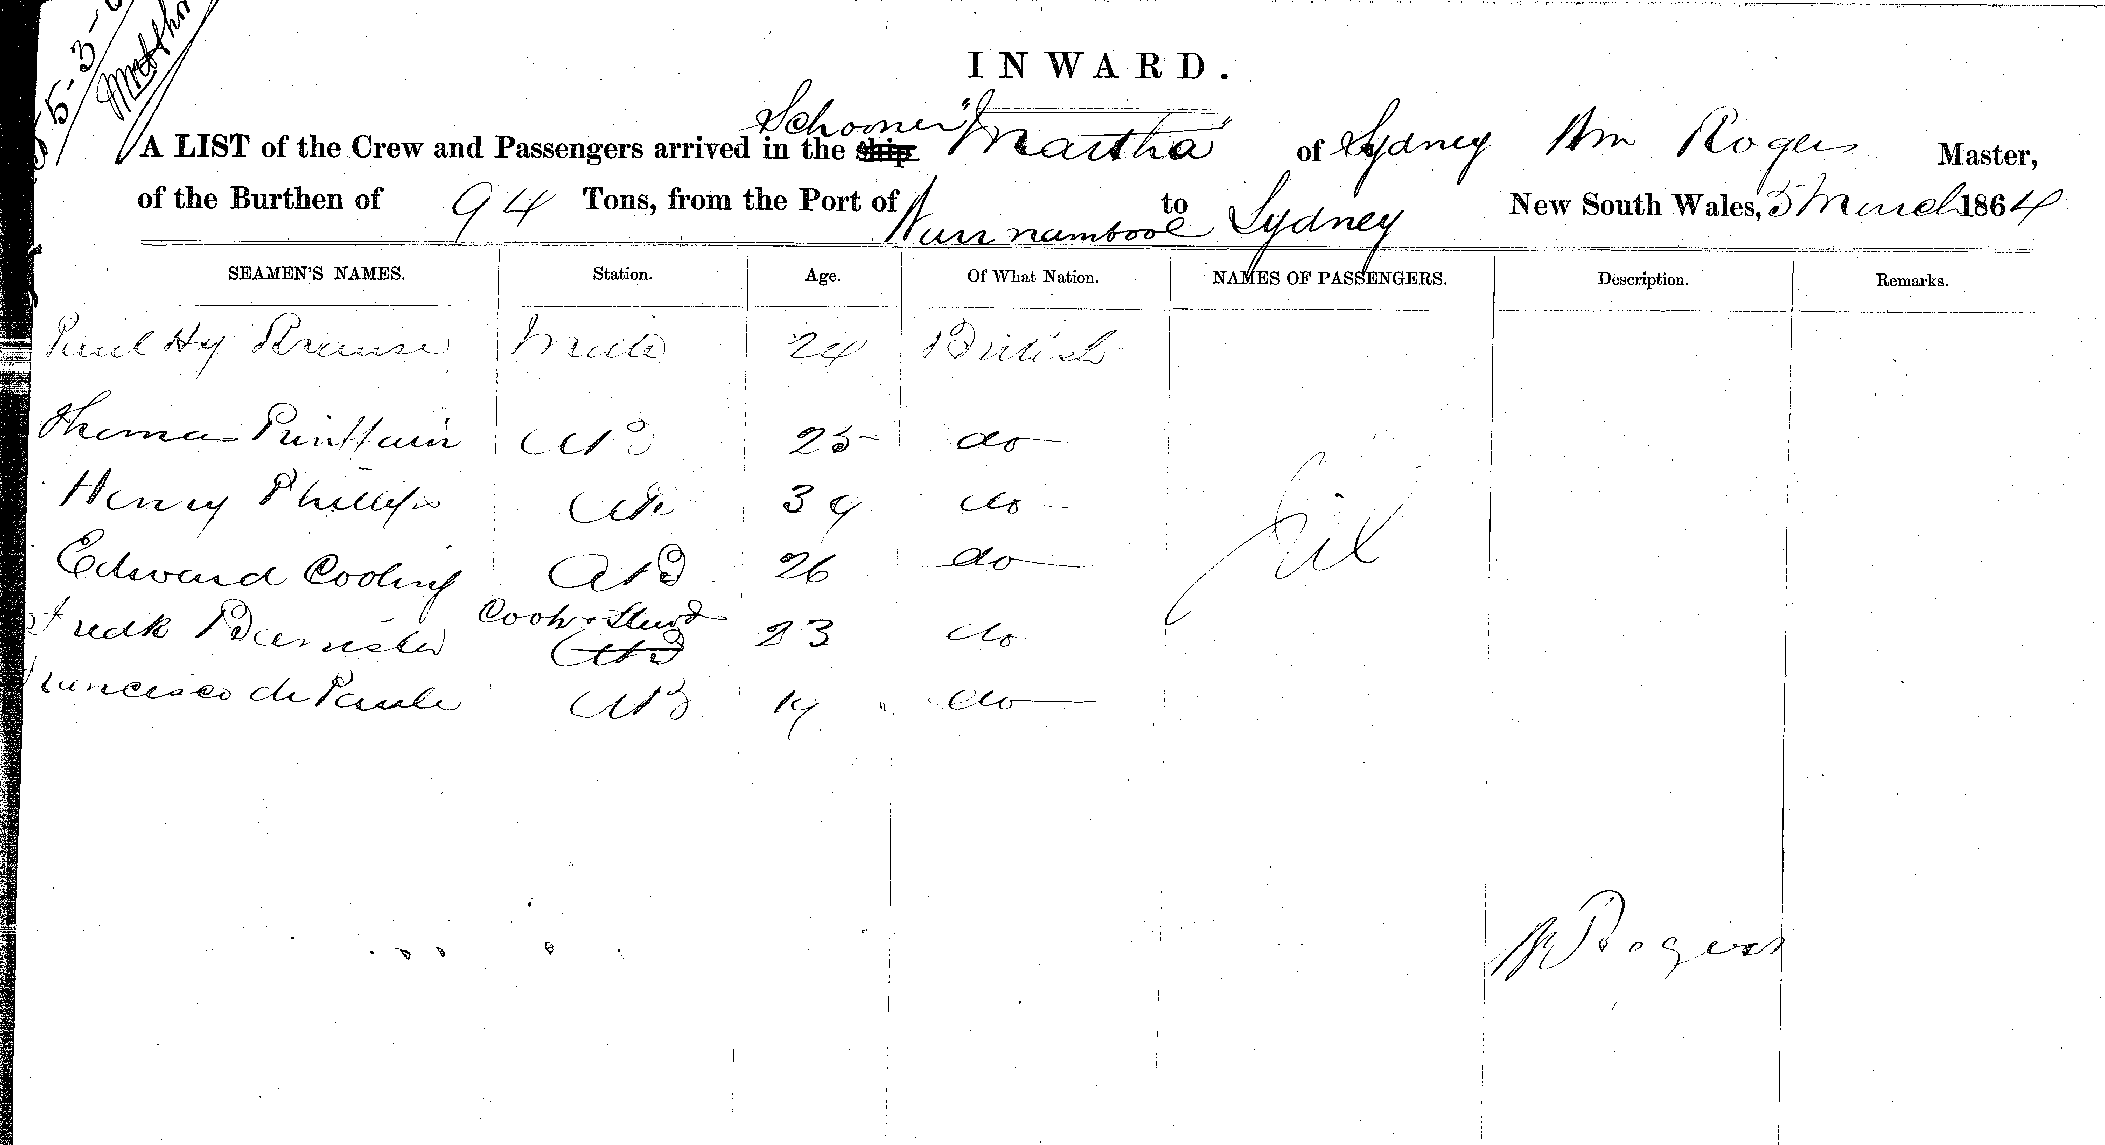 5-3-6
INWARD.
A LIST of the Crew and Passengers arrived in the ship Schooner "Martha" of Sydney Wm Rogers Master,
of the Burthen of 94 Tons, from the Port of Warrnambool to Sydney New South Wales, 5 March 1864
SEAMEN'S NAMES. Station. Age. Of What Nation. NAMES OF PASSENGERS. Description. Remarks.
Paul Hy Krause Mate 24 British
Thomas AB 25 do
Henry Phillips AB 39 do
Edward Cooling AB 26 do
Fredk Bannister Cook & Stewd AB 23 do
Francisco de Paula AB 19 do
Nil
W Rogers